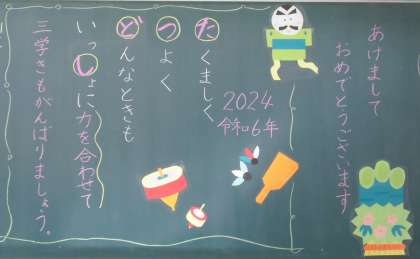 あけまして
おめでとうございます
2024
令和6年
たくましく
つよく
どんなときも
いっしょに力を合わせて
三学きもがんばりましょう。